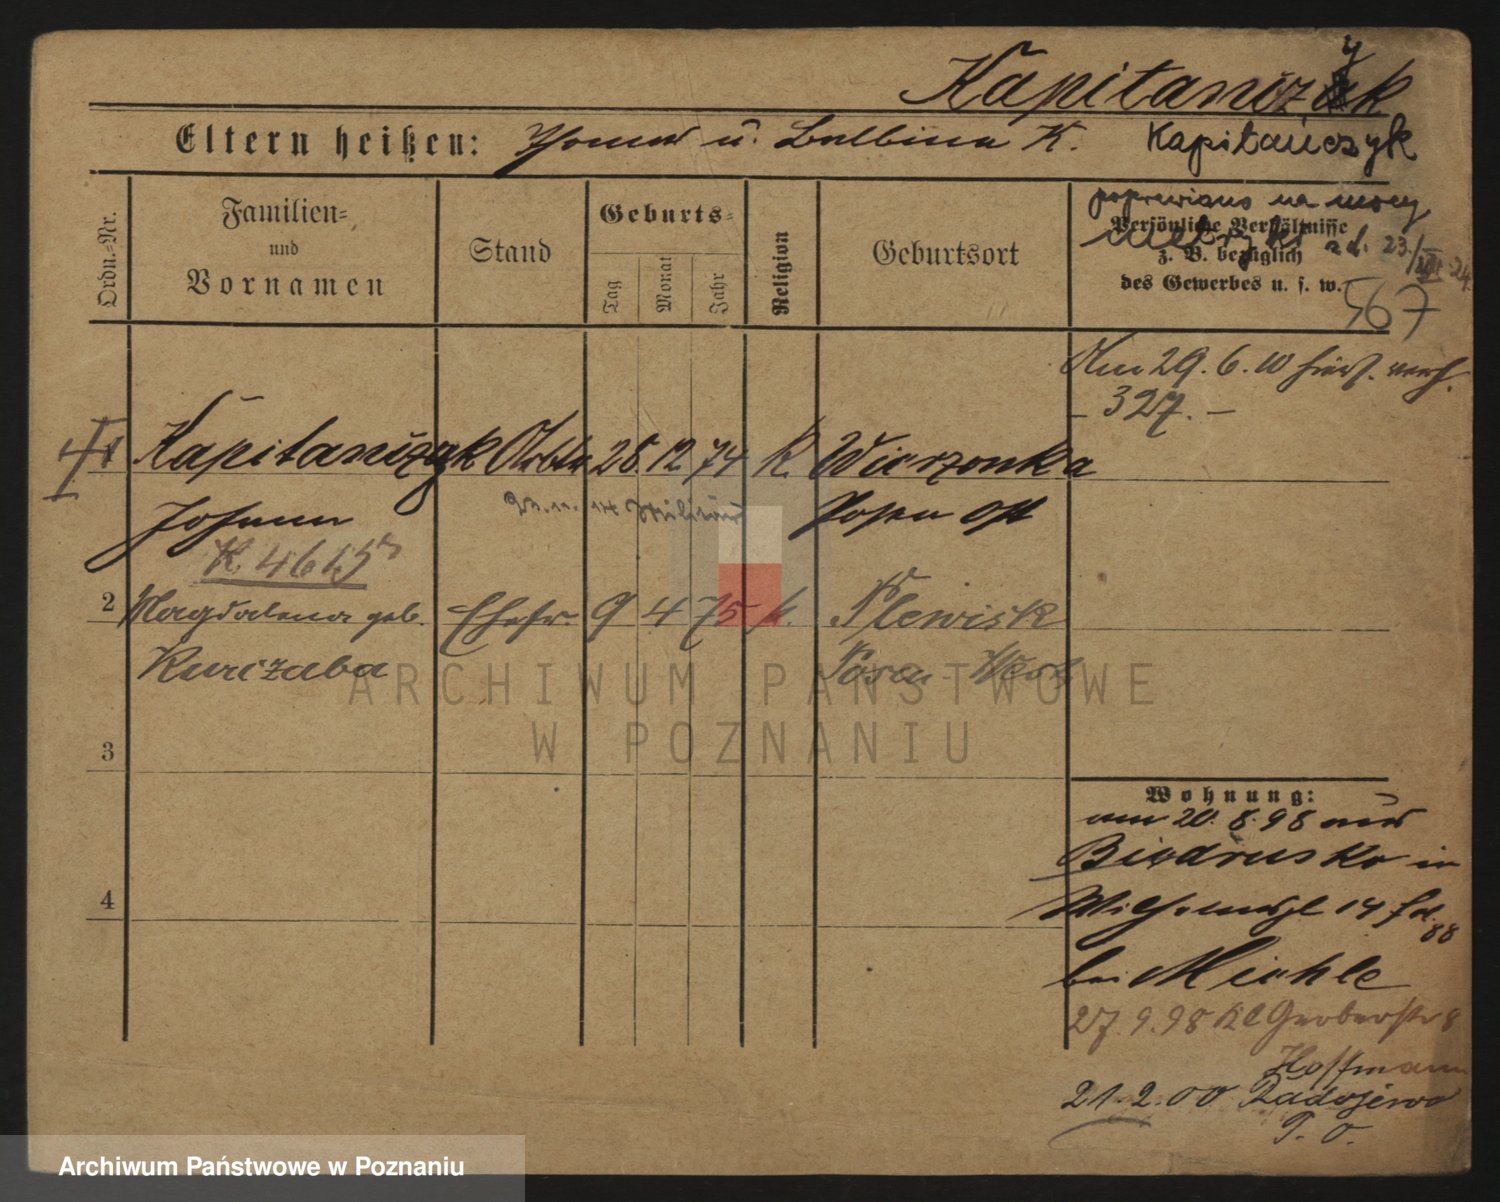 Kapitańczyk
Eltern heißen: Thomas u. Balbina K. Kapitańczyk
Ordn.-Nr.
Familien-
und
Vornamen
Stand
Geburts-
Tag
Monat
Jahr
Religion
Geburtsort
poprawiono na mocy
metryki z d. 23/VIII 24.
Persönliche Verhältnisse
z. B. bezüglich
des Gewerbes u. s. w.
567
Am 29. 6. 10 hies. verh.
– 327. –
1
Kapitańczyk Arbtr 28. 12 74 K. Wierzonka
Johann Posen Ost
K. 4615
2 Magdalena geb. Ehefr. 9 4 75 k. Plewisk
Kurczaba Posen West
3
4
Wohnung:
am 20. 8. 98 aus
Biedrusko in
Wilhelmspl 14
bei Michle
27. 9. 98 Kl Gerberstr 8
Hoffmann
21. 2. 00 Radojewo
P. O.
ARCHIWUM PAŃSTWOWE
W POZNANIU
Archiwum Państwowe w Poznaniu